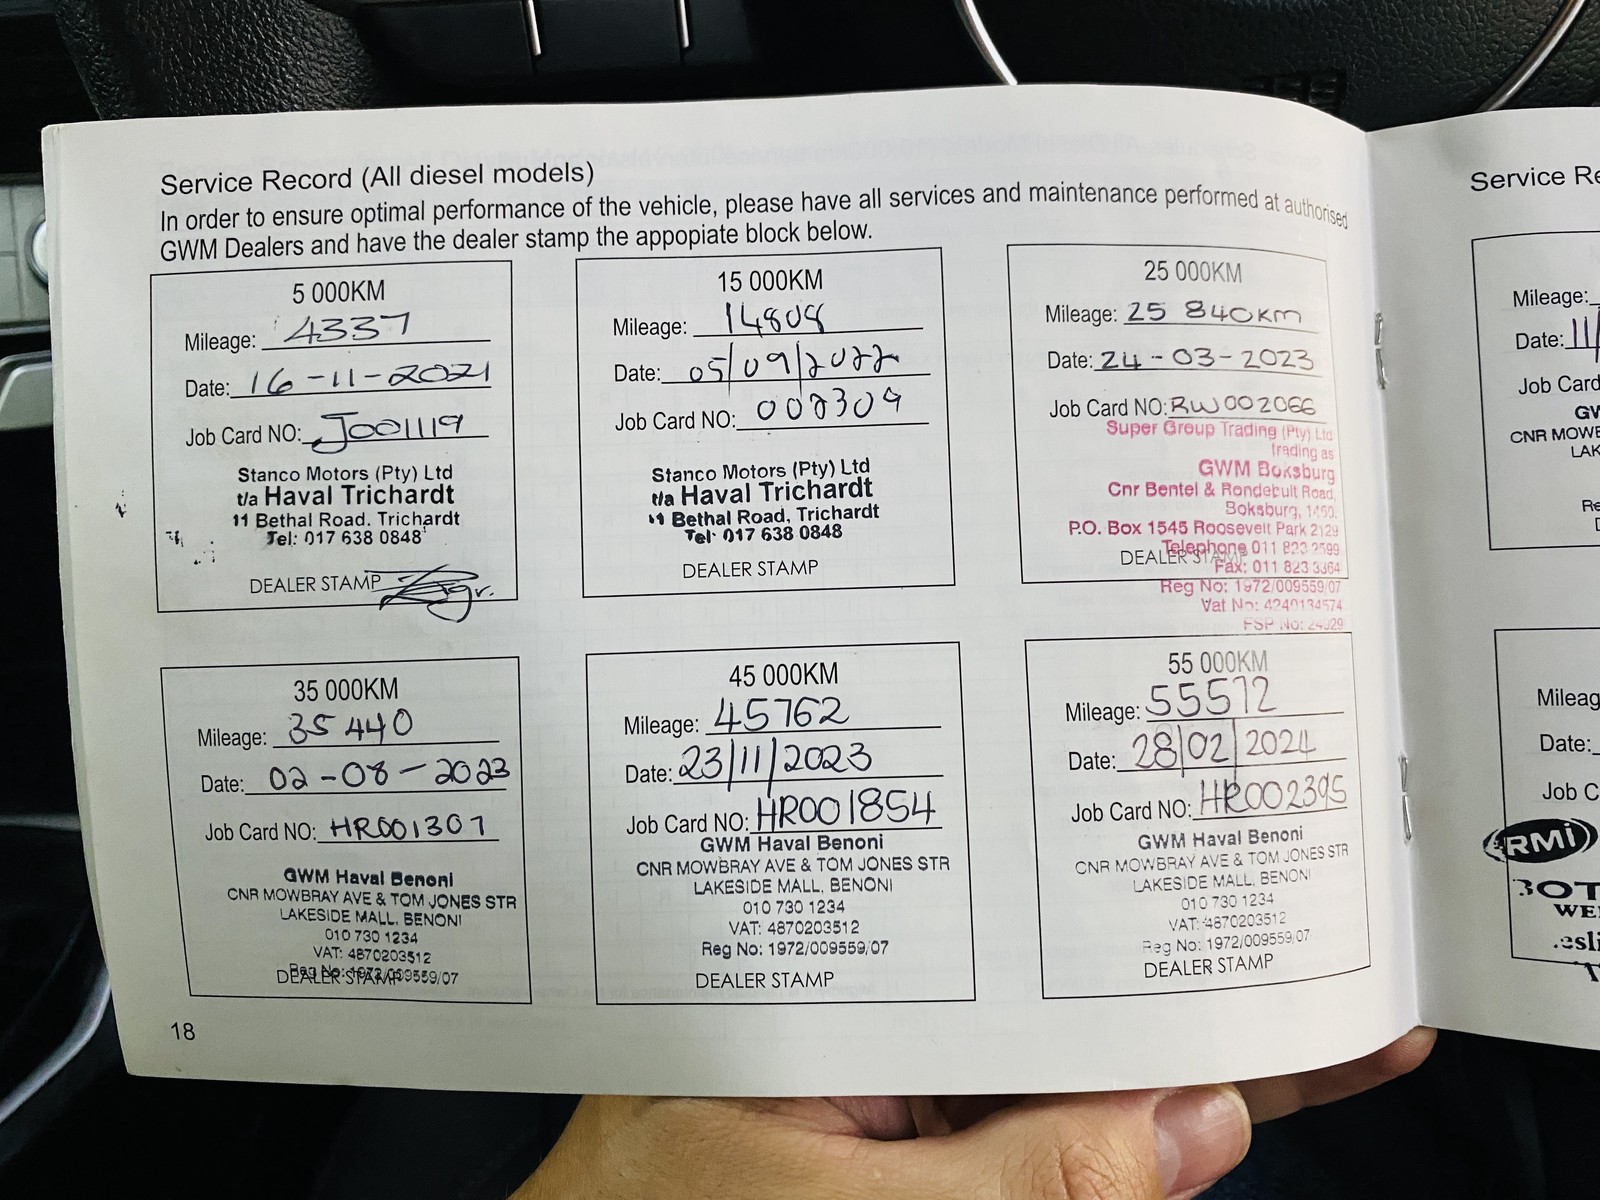 Service Record (All diesel models)
In order to ensure optimal performance of the vehicle, please have all services and maintenance performed at authorised
GWM Dealers and have the dealer stamp the appopiate block below.
5 000KM
Mileage: 4337
Date: 16-11-2021
Job Card NO: J001119
Stanco Motors (Pty) Ltd
t/a Haval Trichardt
11 Bethal Road. Trichardt
Tel: 017 638 0848
DEALER STAMP
15 000KM
Mileage: 14808
Date: 05/09/2022
Job Card NO: 002309
Stanco Motors (Pty) Ltd
t/a Haval Trichardt
11 Bethal Road, Trichardt
Tel: 017 638 0848
DEALER STAMP
25 000KM
Mileage: 25 840KM
Date: 24-03-2023
Job Card NO: RW002066
Super Group Trading (Pty) Ltd
trading as
GWM Boksburg
Cnr Bentel & Rondebult Road,
Boksburg, 1460.
P.O. Box 1545 Roosevelt Park 2129
Telephone 011 823 2599
DEALER STAMP
Fax: 011 823 3364
Reg No: 1972/009559/07
Vat No: 4240134574
FSP No: 24929
35 000KM
Mileage: 35 440
Date: 02-08-2023
Job Card NO: HR001307
GWM Haval Benoni
CNR MOWBRAY AVE & TOM JONES STR
LAKESIDE MALL, BENONI
010 730 1234
VAT: 4870203512
Reg No: 1972/009559/07
DEALER STAMP
45 000KM
Mileage: 45762
Date: 23/11/2023
Job Card NO: HR001854
GWM Haval Benoni
CNR MOWBRAY AVE & TOM JONES STR
LAKESIDE MALL, BENONI
010 730 1234
VAT: 4870203512
Reg No: 1972/009559/07
DEALER STAMP
55 000KM
Mileage: 55572
Date: 28/02/2024
Job Card NO: HR002395
GWM Haval Benoni
CNR MOWBRAY AVE & TOM JONES STR
LAKESIDE MALL, BENONI
010 730 1234
VAT: 4870203512
Reg No: 1972/009559/07
DEALER STAMP
18
Service Re
Mileage:
Date: 11/
Job Card
GW
CNR MOWB
LAK
Re
Mileag
Date:
Job C
RMi
BOT
WE